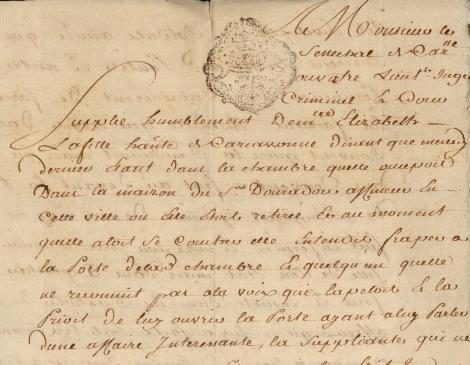 A Monsieur le
Senechal de Car.ne
ou votre Lieut.t Juge
Criminel
Supplie humblement Dem.lle Elizabeth
Lafitte hab.te de Carcassonne disant que mercredy
dernier etant dans la chambre quelle occupoit
Dans la maison du S.r Douradou En
Cette ville ou Elle Etoit retirée Et au moment
quelle aloit se coucher elle Entendit fraper a
la Porte de lad chambre Et quelquun quelle
ne reconnut pas a la voix que lapeloit Et la
Prioit de luy ouvrir la Porte ayant a luy Parler
dune affaire Interessante, la Suppliante qui ne